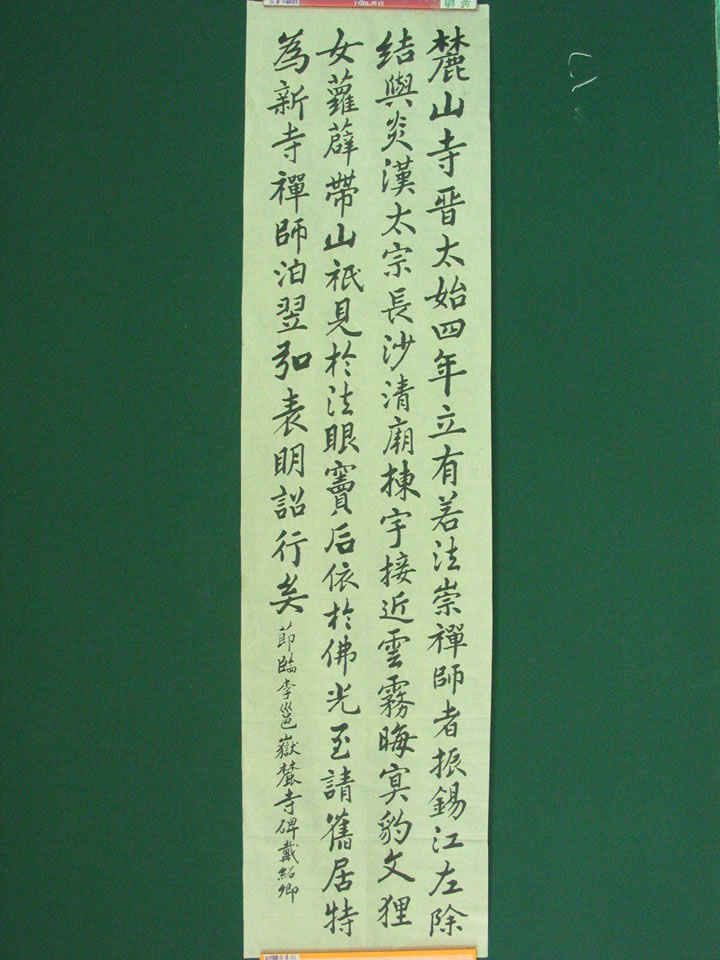 麓山寺晉太始四年立有若法崇禪師者振錫江左除
結與炎漢太宗長沙清廟棟宇接近雲霧晦冥豹文狸
女蘿薜帶山祇見於法眼竇后依於佛光至請舊居特
為新寺禪師洎翌弘表明詔行矣
節臨李邕嶽麓寺碑戴紹卿